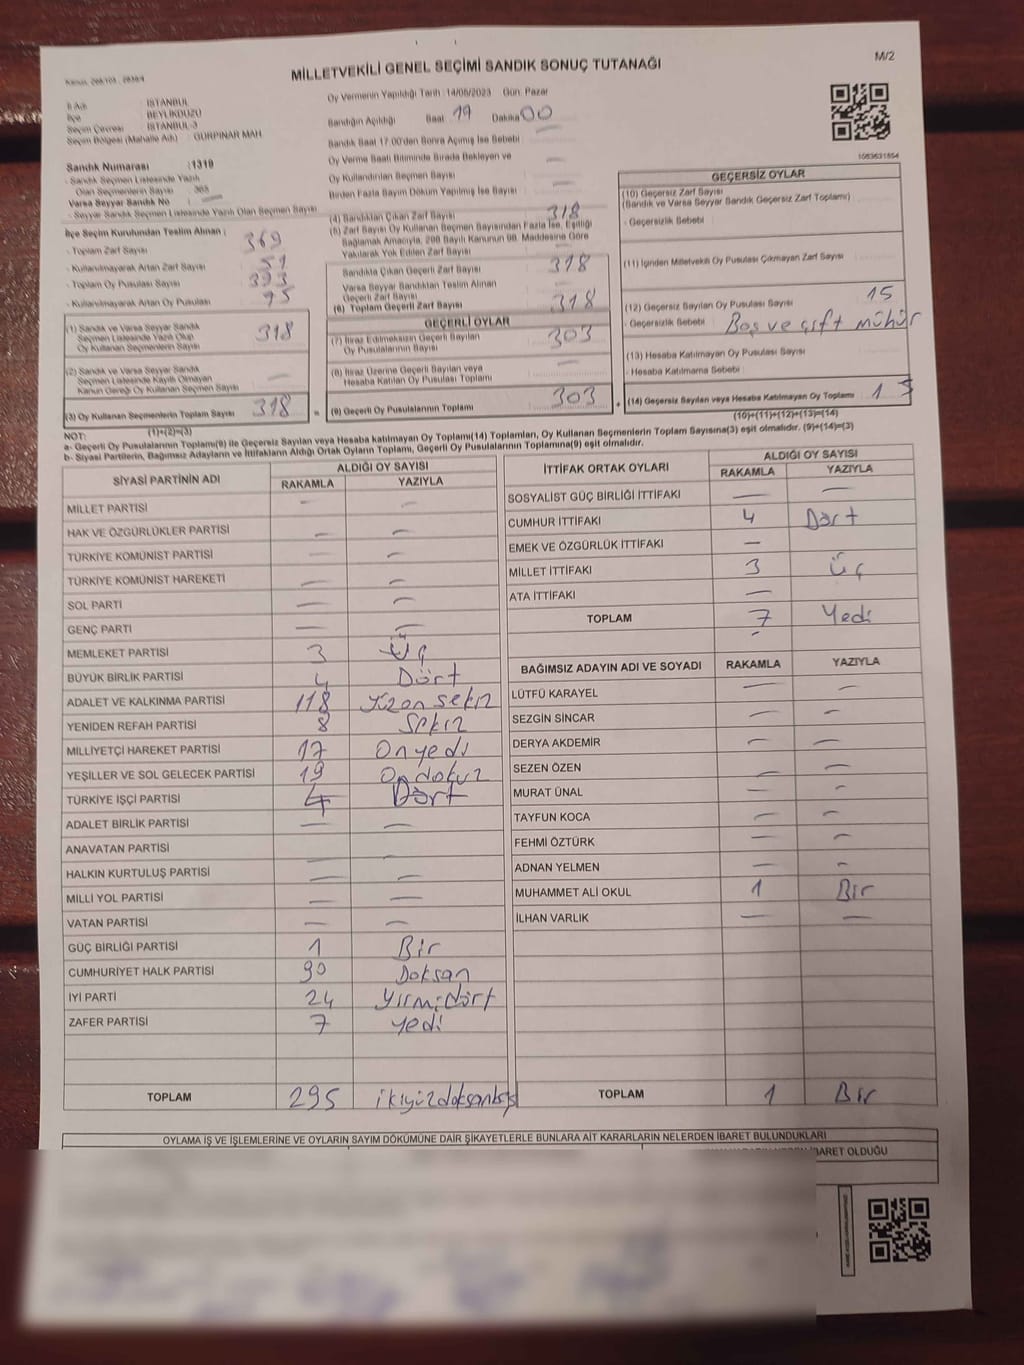 M/2
Kanun, 298/105 - 2839/4
MİLLETVEKİLİ GENEL SEÇİMİ SANDIK SONUÇ TUTANAĞI
İl Adı : İSTANBUL
İlçe : BEYLİKDÜZÜ
Seçim Çevresi : İSTANBUL-3
Seçim Bölgesi (Mahalle Adı) : GÜRPINAR MAH.
Oy Vermenin Yapıldığı Tarih : 14/05/2023 Gün: Pazar
Sandığın Açıldığı Saat 19 Dakika 00
Sandık Saat 17:00'den Sonra Açılmış İse Sebebi
Oy Verme Saati Bitiminde Sırada Bekleyen ve
Oy Kullandırılan Seçmen Sayısı
Birden Fazla Sayım Döküm Yapılmış İse Sayısı
Sandık Numarası : 1319
- Sandık Seçmen Listesinde Yazılı
Olan Seçmenlerin Sayısı : 365
Varsa Seyyar Sandık No
- Seyyar Sandık Seçmen Listesinde Yazılı Olan Seçmen Sayısı
İlçe Seçim Kurulundan Teslim Alınan ;
- Toplam Zarf Sayısı 369
- Kullanılmayarak Artan Zarf Sayısı 51
- Toplam Oy Pusulası Sayısı 393
- Kullanılmayarak Artan Oy Pusulası 75
(1) Sandık ve Varsa Seyyar Sandık
Seçmen Listesinde Yazılı Olup
Oy Kullanan Seçmenlerin Sayısı 318
(2) Sandık ve Varsa Seyyar Sandık
Seçmen Listesinde Kayıtlı Olmayan
Kanun Gereği Oy Kullanan Seçmen Sayısı —
(3) Oy Kullanan Seçmenlerin Toplam Sayısı 318
(1)+(2)=(3)
(4) Sandıktan Çıkan Zarf Sayısı 318
(5) Zarf Sayısı Oy Kullanan Seçmen Sayısından Fazla İse, Eşitliği
Sağlamak Amacıyla, 298 Sayılı Kanunun 98. Maddesine Göre
Yakılarak Yok Edilen Zarf Sayısı
Sandıkta Çıkan Geçerli Zarf Sayısı 318
Varsa Seyyar Sandıktan Teslim Alınan
Geçerli Zarf Sayısı
(6) Toplam Geçerli Zarf Sayısı 318
GEÇERLİ OYLAR
(7) İtiraz Edilmeksizin Geçerli Sayılan
Oy Pusulalarının Sayısı 303
(8) İtiraz Üzerine Geçerli Sayılan veya
Hesaba Katılan Oy Pusulası Toplamı —
= (9) Geçerli Oy Pusulalarının Toplamı 303
1083631854
GEÇERSİZ OYLAR
(10) Geçersiz Zarf Sayısı
(Sandık ve Varsa Seyyar Sandık Geçersiz Zarf Toplamı)
- Geçersizlik Sebebi :
(11) İçinden Milletvekili Oy Pusulası Çıkmayan Zarf Sayısı
(12) Geçersiz Sayılan Oy Pusulası Sayısı 15
- Geçersizlik Sebebi : Boş ve çift mühür
(13) Hesaba Katılmayan Oy Pusulası Sayısı
- Hesaba Katılmama Sebebi :
+ (14) Geçersiz Sayılan veya Hesaba Katılmayan Oy Toplamı 15
(10)+(11)+(12)+(13)=(14)
NOT:
a- Geçerli Oy Pusulalarının Toplamı(9) ile Geçersiz Sayılan veya Hesaba katılmayan Oy Toplamı(14) Toplamları, Oy Kullanan Seçmenlerin Toplam Sayısına(3) eşit olmalıdır. (9)+(14)=(3)
b- Siyasi Partilerin, Bağımsız Adayların ve İttifakların Aldığı Ortak Oyların Toplamı, Geçerli Oy Pusulalarının Toplamına(9) eşit olmalıdır.
SİYASİ PARTİNİN ADI ALDIĞI OY SAYISI
RAKAMLA YAZIYLA
MİLLET PARTİSİ — —
HAK VE ÖZGÜRLÜKLER PARTİSİ — —
TÜRKİYE KOMÜNİST PARTİSİ — —
TÜRKİYE KOMÜNİST HAREKETİ — —
SOL PARTİ — —
GENÇ PARTİ — —
MEMLEKET PARTİSİ 3 Üç
BÜYÜK BİRLİK PARTİSİ 4 Dört
ADALET VE KALKINMA PARTİSİ 118 Yüzon sekiz
YENİDEN REFAH PARTİSİ 8 Sekiz
MİLLİYETÇİ HAREKET PARTİSİ 17 Onyedi
YEŞİLLER VE SOL GELECEK PARTİSİ 19 Ondokuz
TÜRKİYE İŞÇİ PARTİSİ 4 Dört
ADALET BİRLİK PARTİSİ — —
ANAVATAN PARTİSİ — —
HALKIN KURTULUŞ PARTİSİ — —
MİLLİ YOL PARTİSİ — —
VATAN PARTİSİ — —
GÜÇ BİRLİĞİ PARTİSİ 1 Bir
CUMHURİYET HALK PARTİSİ 90 Doksan
İYİ PARTİ 24 Yirmidört
ZAFER PARTİSİ 7 Yedi
TOPLAM 295 ikiyüzdoksanbeş
İTTİFAK ORTAK OYLARI ALDIĞI OY SAYISI
RAKAMLA YAZIYLA
SOSYALİST GÜÇ BİRLİĞİ İTTİFAKI — —
CUMHUR İTTİFAKI 4 Dört
EMEK VE ÖZGÜRLÜK İTTİFAKI —
MİLLET İTTİFAKI 3 Üç
ATA İTTİFAKI —
TOPLAM 7 Yedi
BAĞIMSIZ ADAYIN ADI VE SOYADI RAKAMLA YAZIYLA
LÜTFÜ KARAYEL — —
SEZGİN SİNCAR — —
DERYA AKDEMİR — —
SEZEN ÖZEN — —
MURAT ÜNAL — —
TAYFUN KOCA — —
FEHMİ ÖZTÜRK — —
ADNAN YELMEN — —
MUHAMMET ALİ OKUL 1 Bir
İLHAN VARLIK — —
TOPLAM 1 Bir
OYLAMA İŞ VE İŞLEMLERİNE VE OYLARIN SAYIM DÖKÜMÜNE DAİR ŞİKAYETLERLE BUNLARA AİT KARARLARIN NELERDEN İBARET BULUNDUKLARI
İBARET OLDUĞU